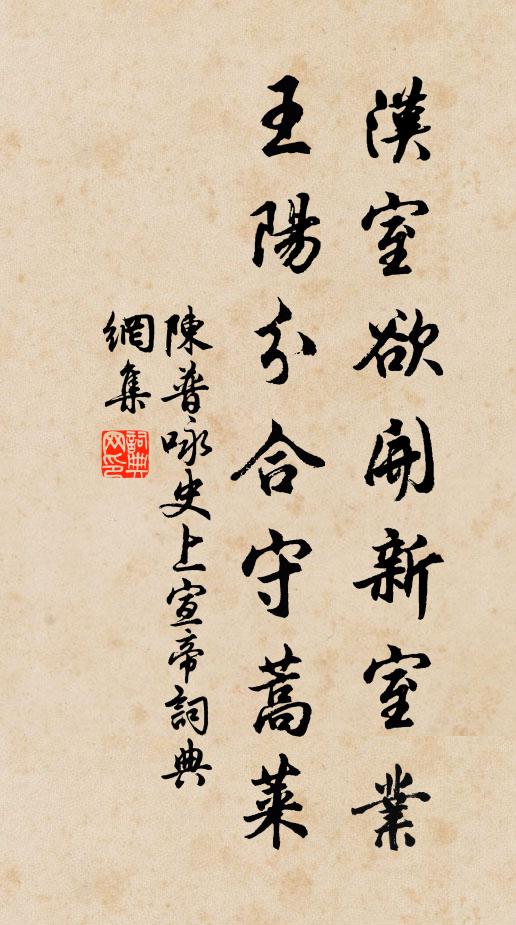 漢室欲開新室業
王陽分合守蒿萊
陳普咏史上宣帝詞典
網集
詞典网印